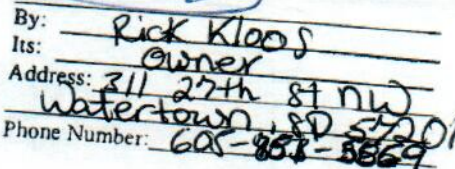 By: Rick Kloos
Its: Owner
Address: 311 27th St NW
Watertown, SD 57201
Phone Number: 605-